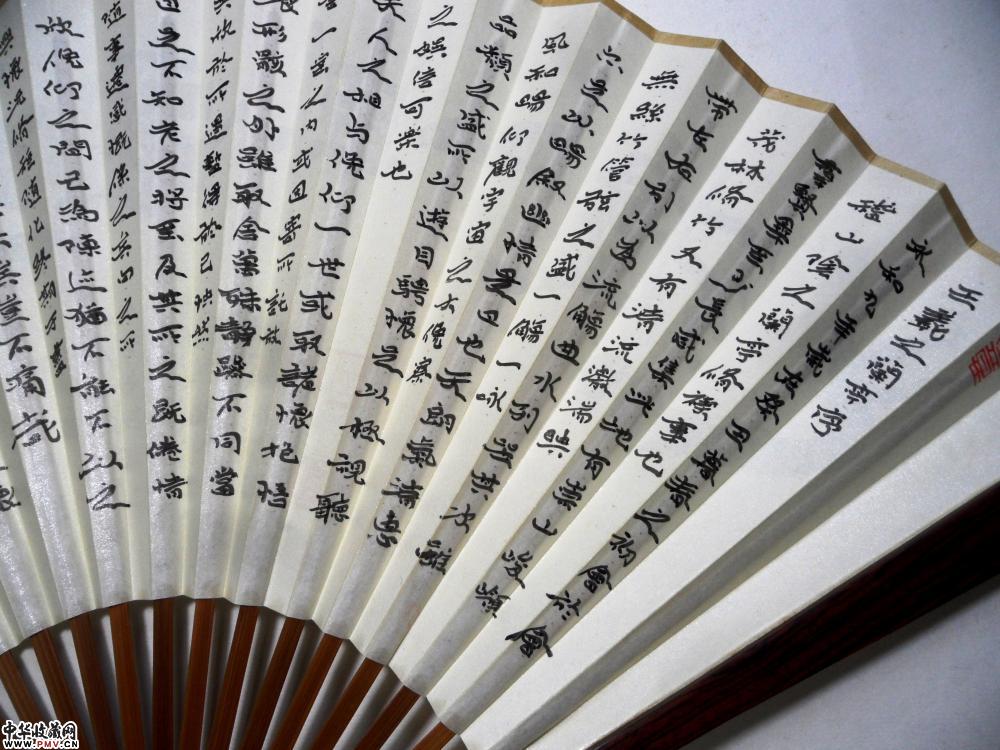 王羲之蘭亭序
永和九年歲在癸丑暮春之初會於會
稽山陰之蘭亭脩稧事也
羣賢畢至少長咸集此地有崇山峻嶺
茂林脩竹又有清流激湍映
帶左右引以為流觴曲水列坐其次雖
無絲竹管絃之盛一觴一詠
亦足以暢敘幽情是日也天朗氣清惠
風和暢仰觀宇宙之大俛察
品類之盛所以遊目騁懷足以極視聽
之娛信可樂也
夫人之相與俛仰一世或取諸懷抱悟
言一室之內或因寄所託放
形骸之外雖取舍萬殊靜躁不同當
其欣於所遇暫得於己快然
自足不知老之將至及其所之既倦情
隨事遷感慨係之矣向之所
欣俛仰之閒已為陳迹猶不能不以之
懷況脩短隨化終期於盡
豈不痛哉
中华收藏网
www.PMV.CN